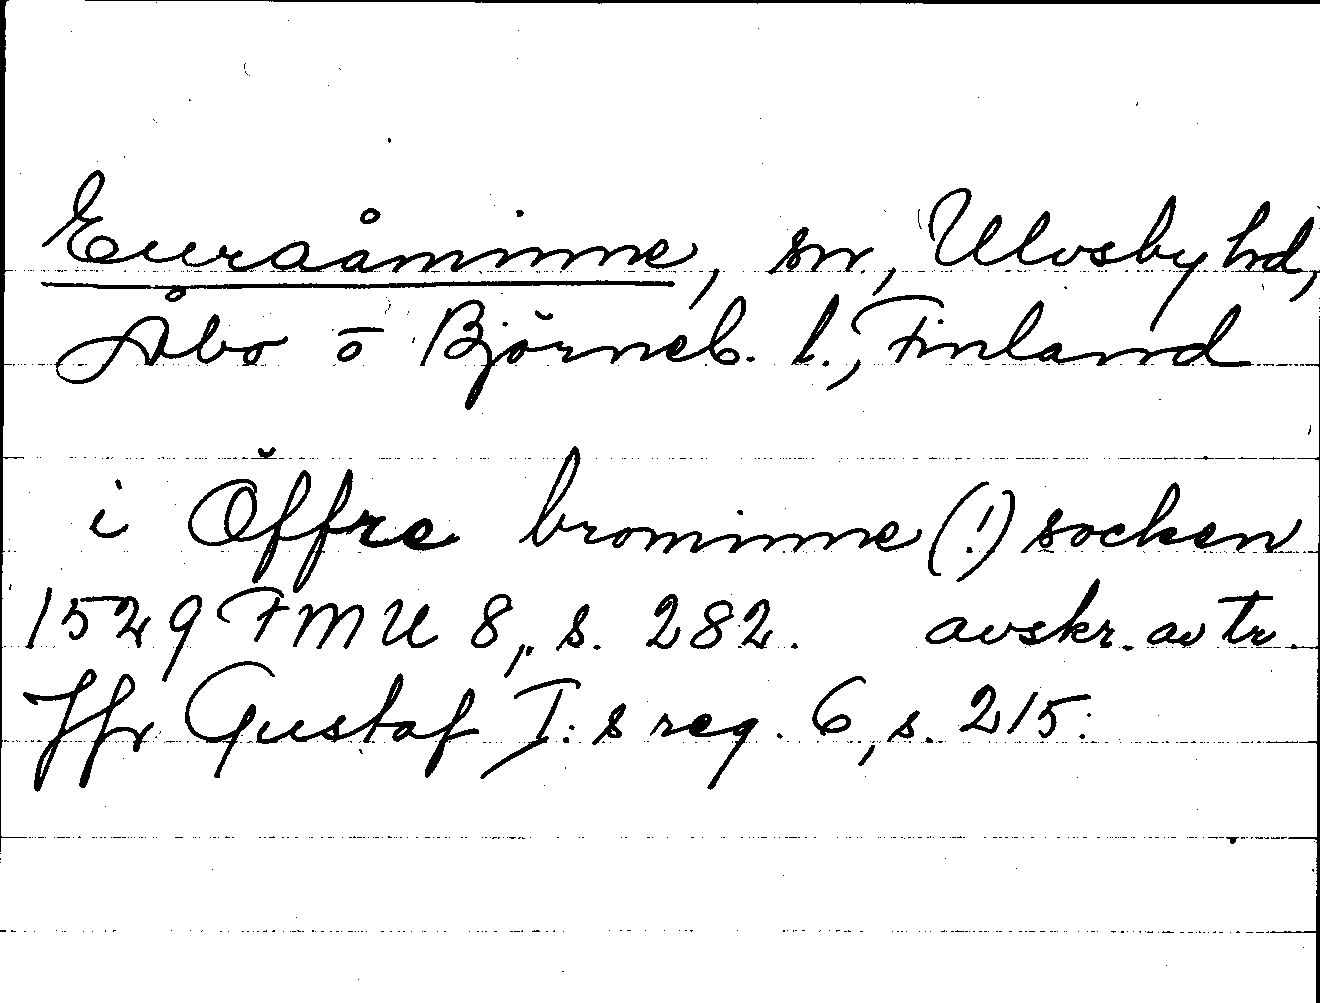 Euraåminne, sn, Ulvsby hd,
Åbo o Björneb. l., Finland
i Öffre brominne (!) socken
1529 FMU 8, s. 282. avskr. av tr.
Jfr Gustaf I:s reg. 6, s. 215.